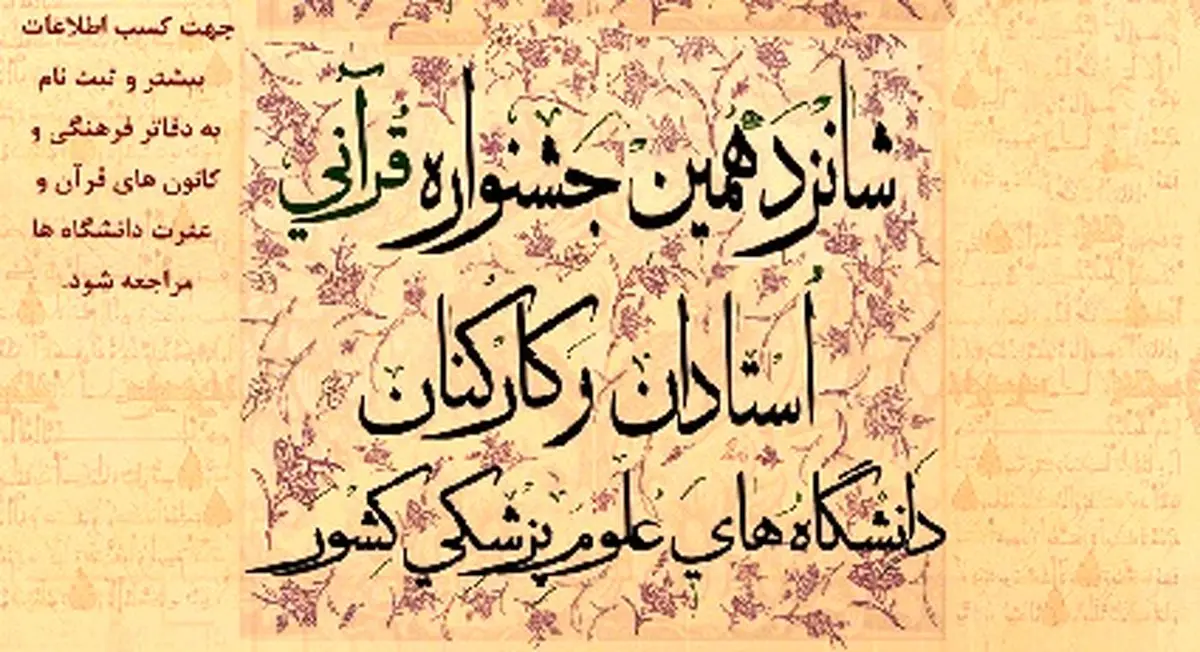 شانزدهمین جشنواره قرآني
اُستادان وکارکنان
دانشگاه هاي علوم پزشکي کشور
جهت کسب اطلاعات
بیشتر و ثبت نام
به دفاتر فرهنگی و
کانون های قرآن و
عترت دانشگاه ها
مراجعه شود.